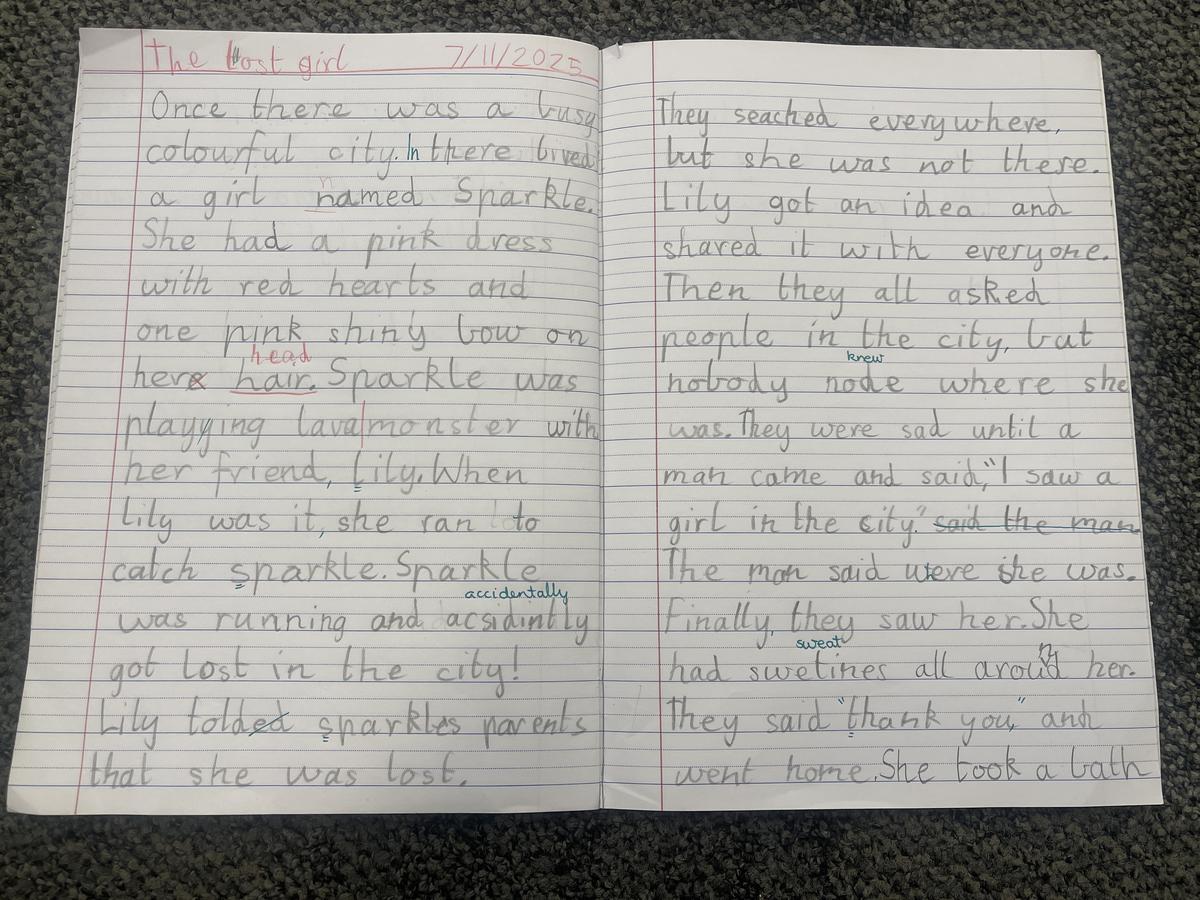 The Lost girl 7/11/2025
Once there was a busy
colourful city. In there lived
a girl named Sparkle.
She had a pink dress
with red hearts and
one pink shiny bow on
head
here hair. Sparkle was
playying lava monster with
her friend, Lily. When
Lily was it, she ran to
catch sparkle. Sparkle
accidentally
was running and acsidintly
got lost in the city!
Lily tolded sparkles parents
that she was lost.
They seached everywhere,
but she was not there.
Lily got an idea and
shared it with everyone.
Then they all asked
people in the city, but
knew
nobody node where she
was. They were sad until a
man came and said, "I saw a
girl in the city." said the man
The man said were she was.
Finally, they saw her. She
sweat
had swetines all around her.
They said "thank you," and
went home. She took a bath